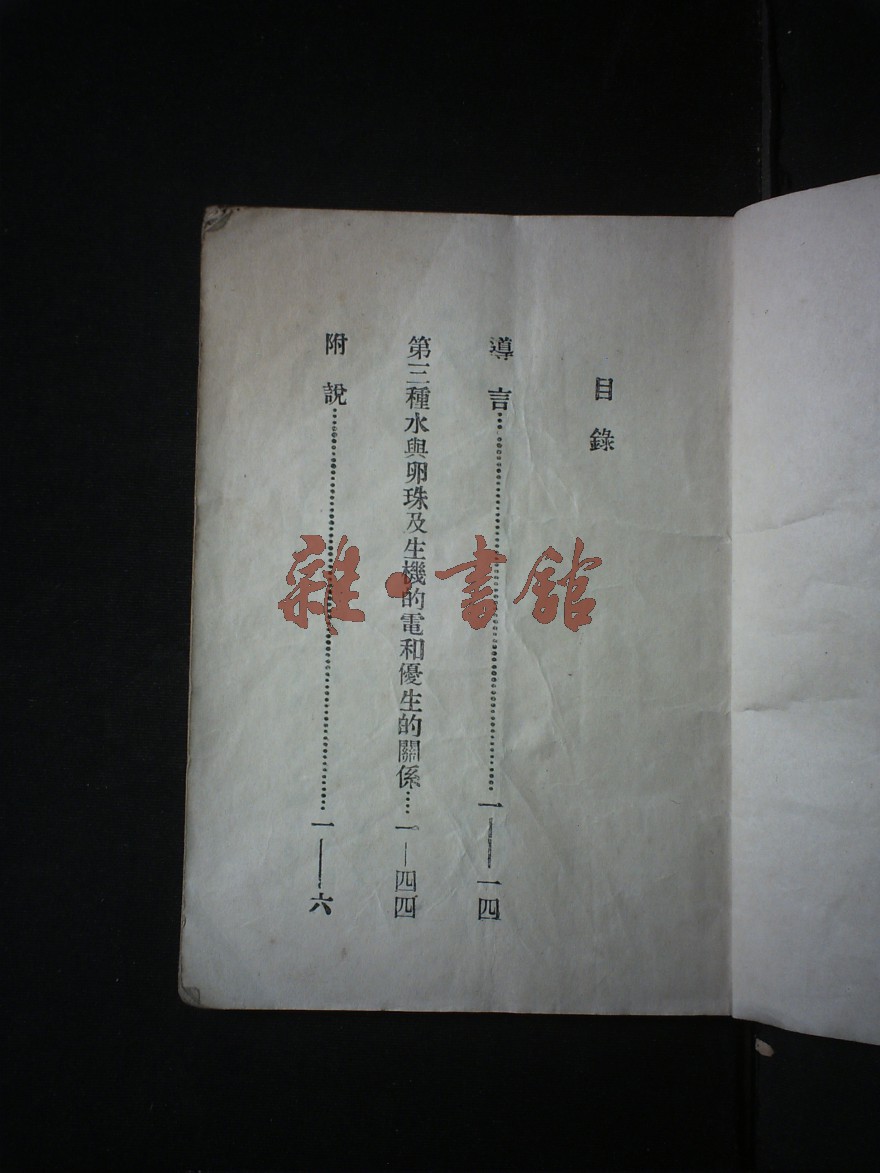 目錄
導言……一——一四
第三種水與卵珠及生機的電和優生的關係……一—四四
附說……一——六
雜·書館